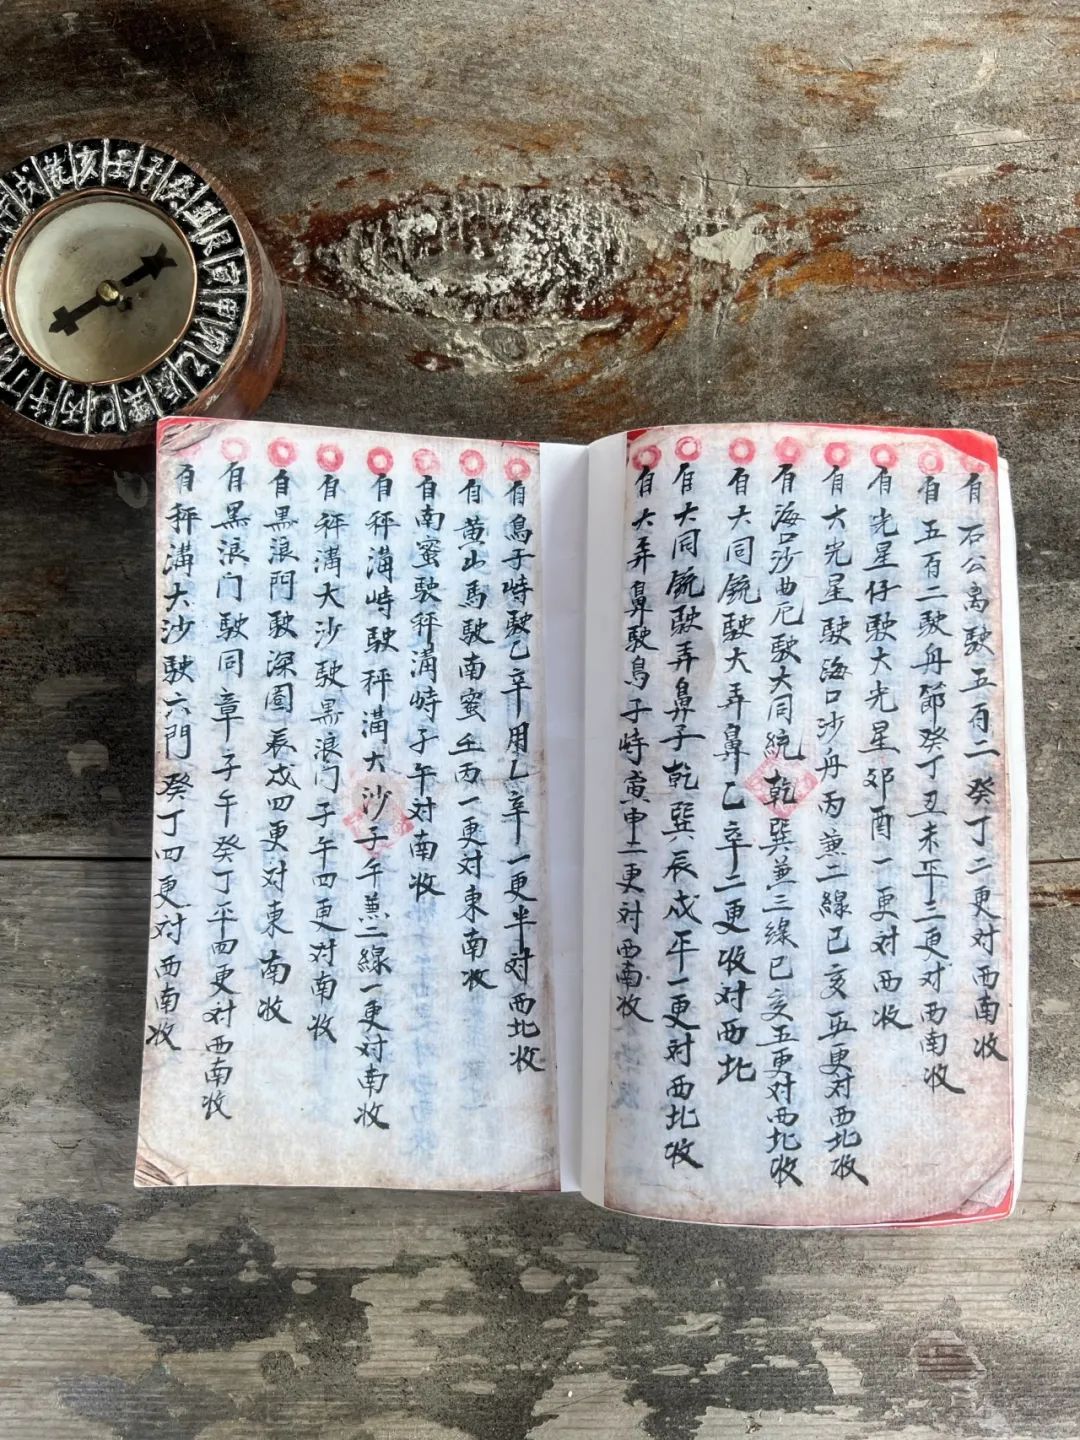 自石公离駛五百二癸丁二更对西南收
自五百二駛舟節癸丁丑未平三更对西南收
自光星仔駛大光星卯酉一更对西收
自大光星駛海口沙舟丙兼二線巳亥五更对西北收
自海口沙曲尼駛大同統乾巽兼三線巳亥五更对西北收
自大同銃駛大弄鼻乙辛二更收对西北
自大同銃駛弄鼻子乾巽辰戍平一更对西北收
自大弄鼻駛鳥子峙寅申二更对西南收
自鳥子峙駛乙辛用乚辛一更半对西北收
自黄山馬駛南蜜壬丙一更对東南收
自南蜜駛秤溝峙子午对南收
自秤溝峙駛秤溝大沙子午兼二線一更对南收
自秤溝大沙駛黑浪门子午四更对南收
自黑浪門駛深圈辰戍四更对東南收
自黑浪门駛同章子午癸丁平四更对西南收
自秤溝大沙駛六門癸丁四更对西南收
戌 乾 亥 壬 子 癸 丑 艮 寅 甲 卯 乙 辰 巽 巳 丙 午 丁